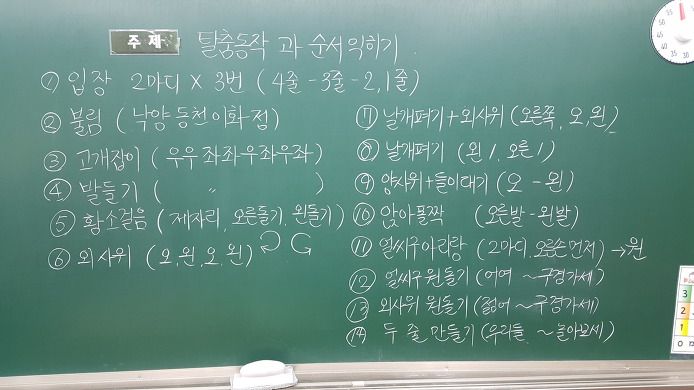 주제 탈춤동작과 순서익히기
① 입장 2마디 X 3번 (4줄-3줄-2,1줄)
② 불림 (낙양동천이화정)
③ 고개잡이 (우우좌좌우좌우좌)
④ 발들기 ( 〃 )
⑤ 황소걸음 (제자리, 오른돌기, 왼돌기)
⑥ 외사위 (오,왼,오,왼)
⑦ 날개펴기+외사위 (오른쪽, 오,왼)
⑧ 날개펴기 (왼1,오른1)
⑨ 양사위+들이대기 (오-왼)
⑩ 앉아풀쩍 (오른발-왼발)
⑪ 얼씨구아리랑 (2마디,오른손먼저)→원
⑫ 얼씨구원돌기 (어여~구경가세)
⑬ 외사위 원돌기 (젊어~구경가세)
⑭ 두 줄 만들기 (우리들~놀아보세)
3
2
1
0
55
50
5
10